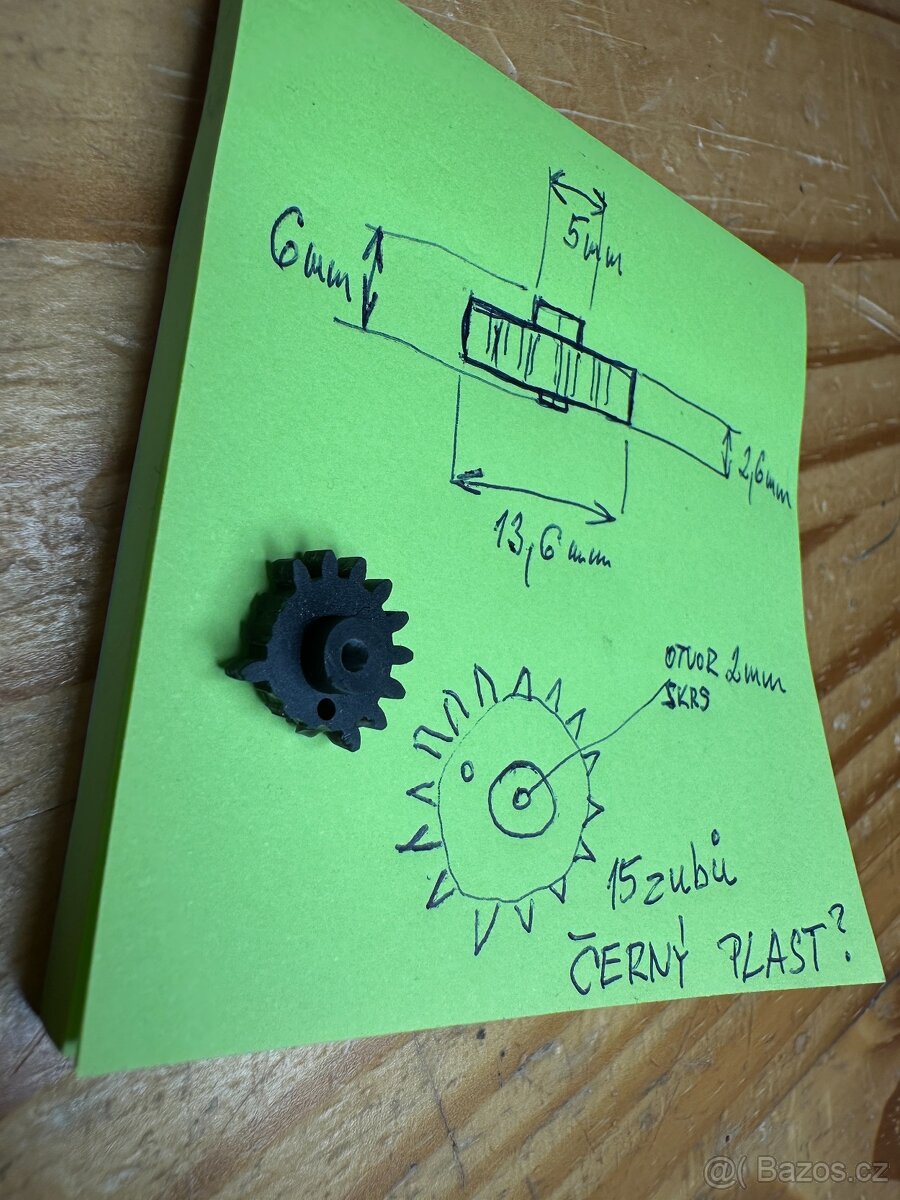 5mm
6mm
2,6mm
13,6mm
OTVOR 2mm
SKRS
15 zubů
ČERNÝ PLAST?
@( Bazos.cz